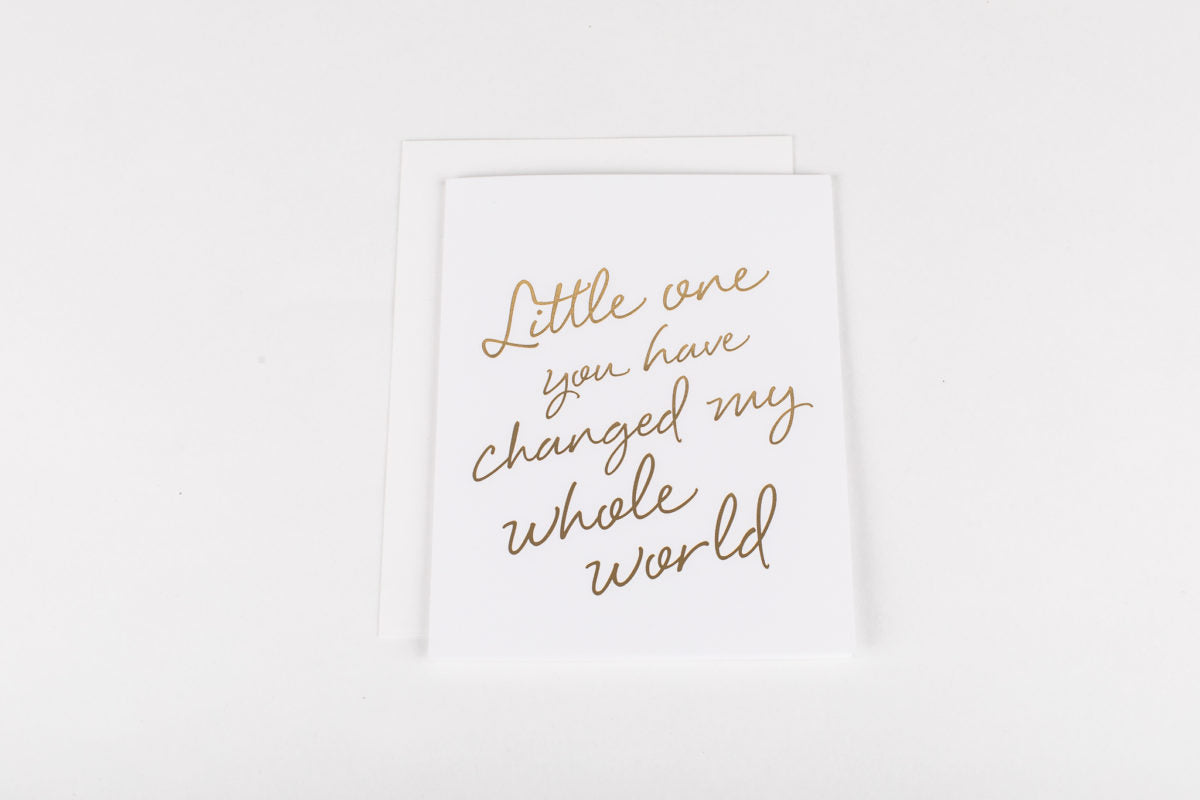 Little one
you have
changed my
whole
world